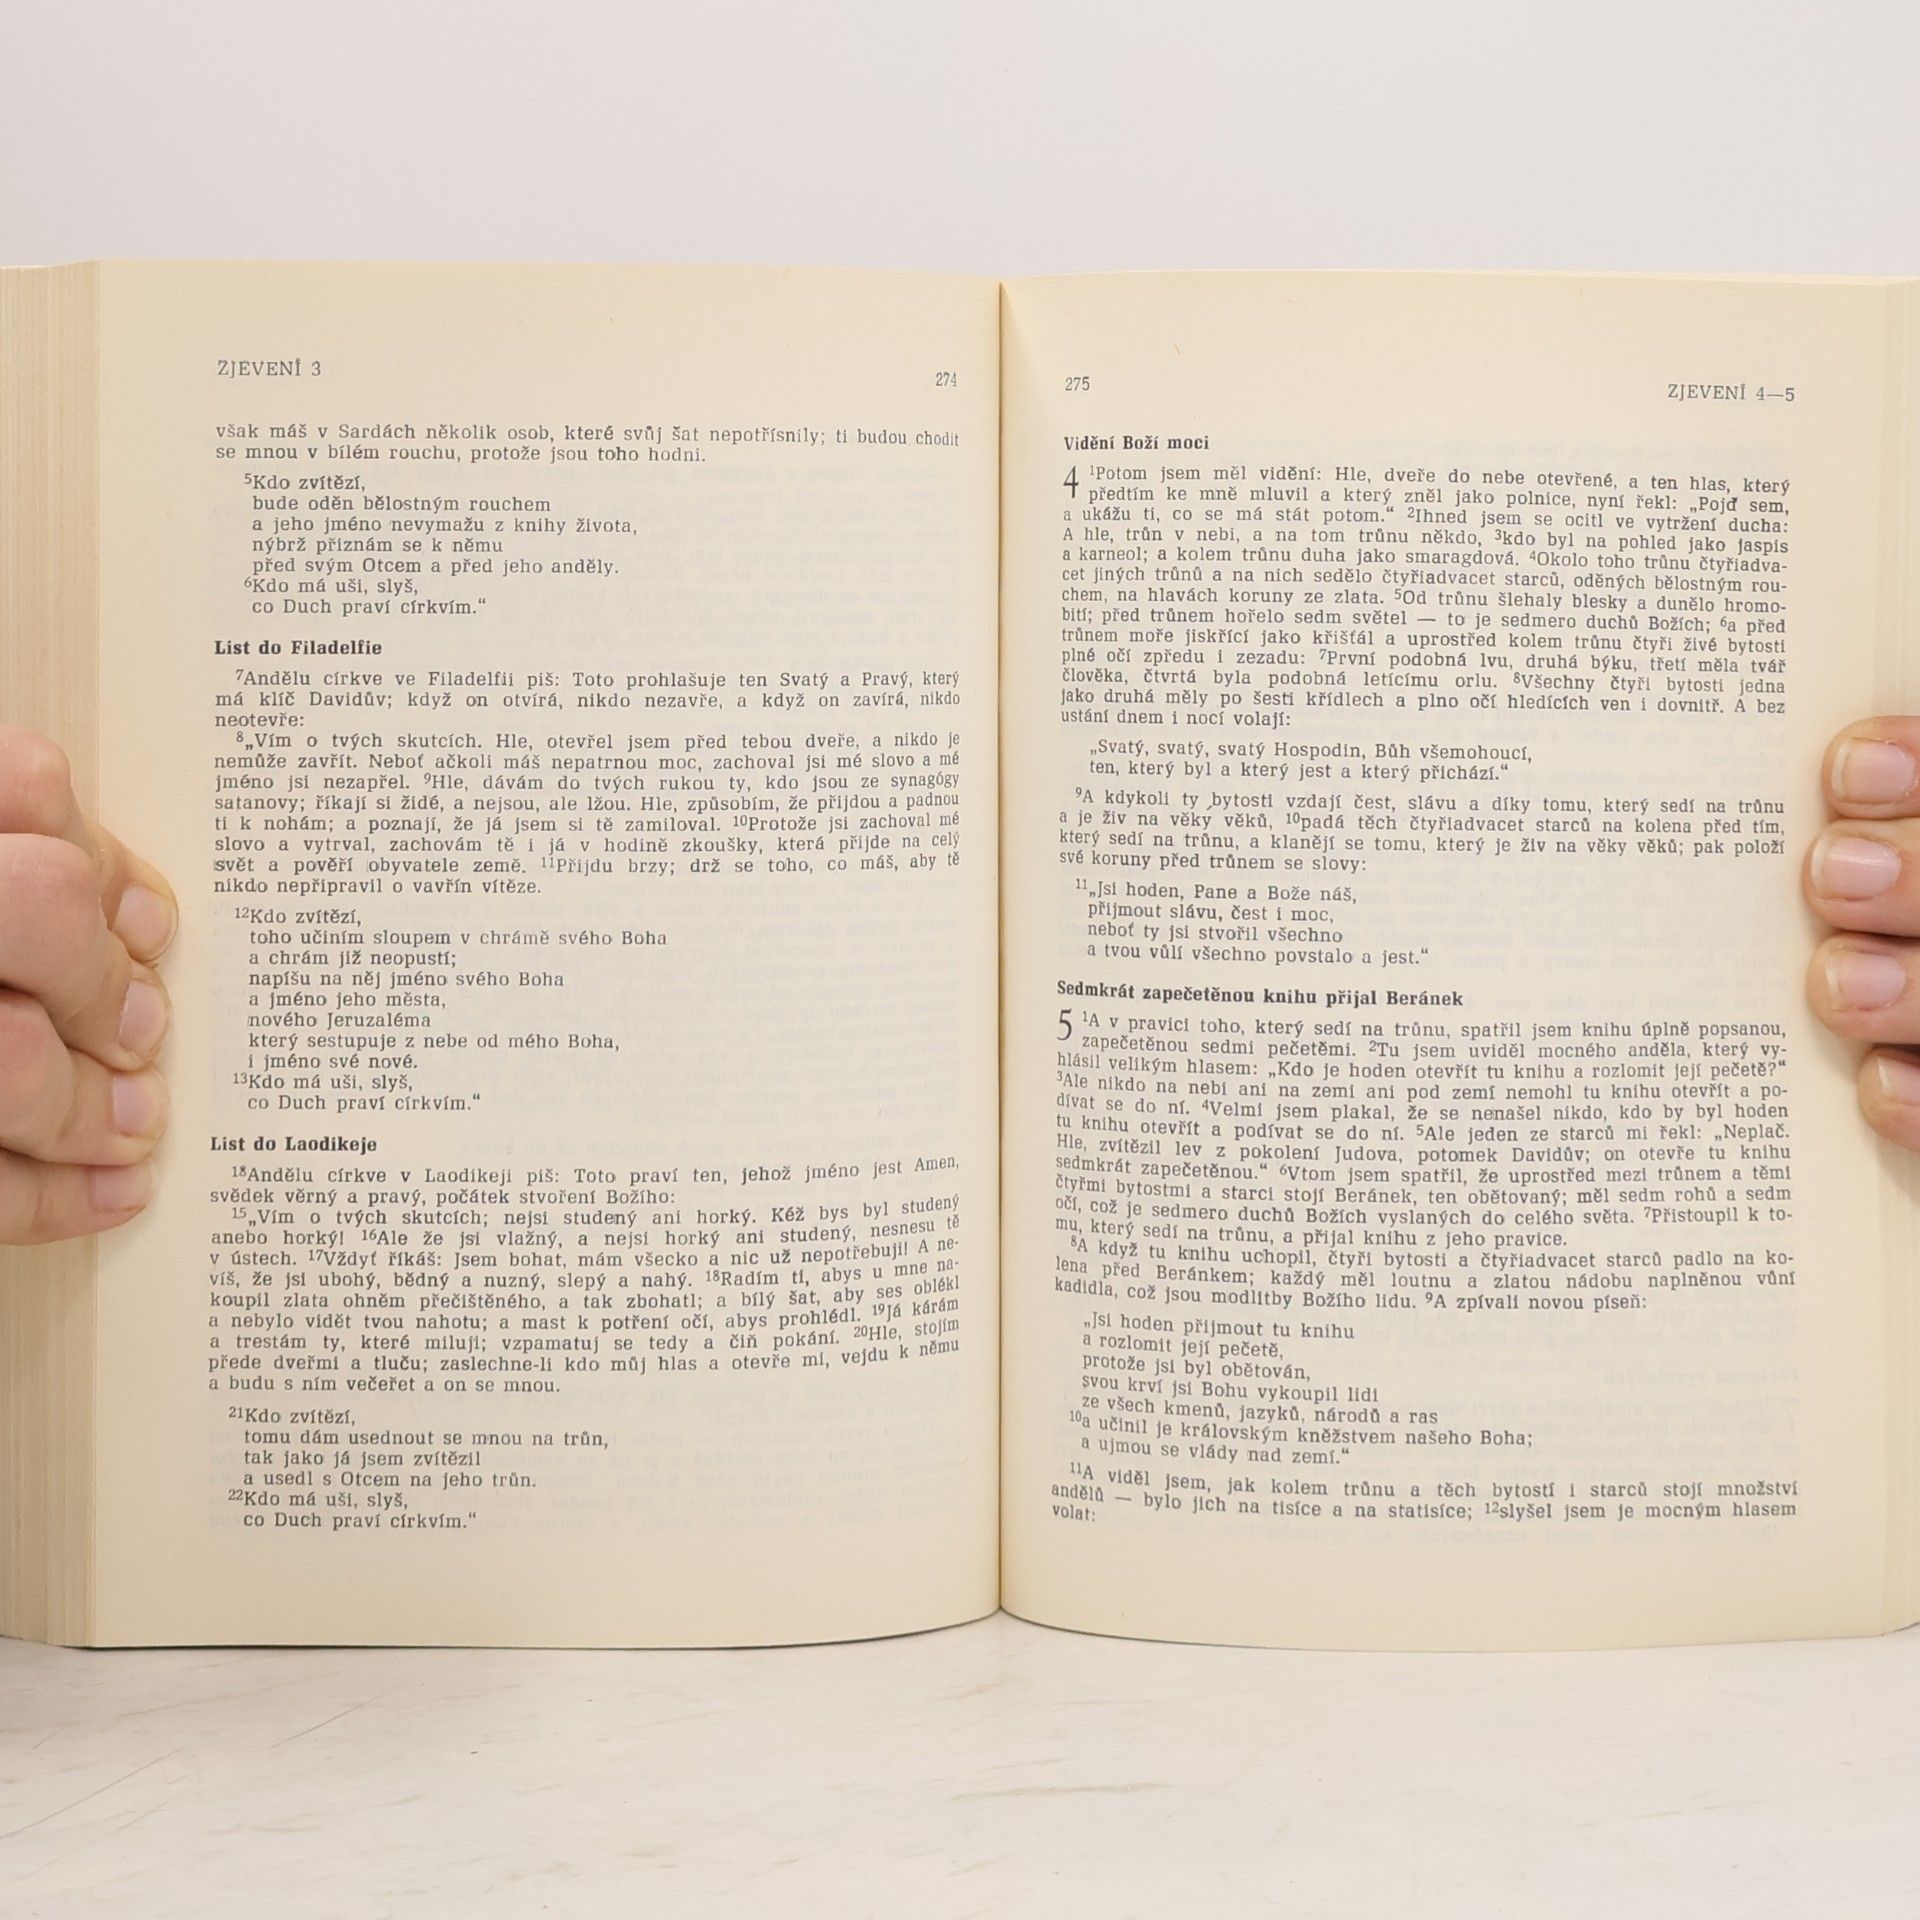 ZJEVENÍ 3
274
však máš v Sardách několik osob, které svůj šat nepotřísnily; ti budou chodit
se mnou v bílém rouchu, protože jsou toho hodni.
⁵Kdo zvítězí,
bude oděn bělostným rouchem
a jeho jméno nevymažu z knihy života,
nýbrž přiznám se k němu
před svým Otcem a před jeho anděly.
⁶Kdo má uši, slyš,
co Duch praví církvím.“
List do Filadelfie
⁷Andělu církve ve Filadelfii piš: Toto prohlašuje ten Svatý a Pravý, který
má klíč Davidův; když on otvírá, nikdo nezavře, a když on zavírá, nikdo
neotevře:
⁸„Vím o tvých skutcích. Hle, otevřel jsem před tebou dveře, a nikdo je
nemůže zavřít. Neboť ačkoli máš nepatrnou moc, zachoval jsi mé slovo a mé
jméno jsi nezapřel. ⁹Hle, dávám do tvých rukou ty, kdo jsou ze synagógy
satanovy; říkají si židé, a nejsou, ale lžou. Hle, způsobím, že přijdou a padnou
ti k nohám; a poznají, že já jsem si tě zamiloval. ¹⁰Protože jsi zachoval mé
slovo a vytrval, zachovám tě i já v hodině zkoušky, která přijde na celý
svět a pověří obyvatele země. ¹¹Přijdu brzy; drž se toho, co máš, aby tě
nikdo nepřipravil o vavřín vítěze.
¹²Kdo zvítězí,
toho učiním sloupem v chrámě svého Boha
a chrám již neopustí;
napíšu na něj jméno svého Boha
a jméno jeho města,
nového Jeruzaléma
který sestupuje z nebe od mého Boha,
i jméno své nové.
¹³Kdo má uši, slyš,
co Duch praví církvím.“
List do Laodikeje
¹⁸Andělu církve v Laodikeji piš: Toto praví ten, jehož jméno jest Amen,
svědek věrný a pravý, počátek stvoření Božího:
¹⁵„Vím o tvých skutcích; nejsi studený ani horký. Kéž bys byl studený
anebo horký! ¹⁶Ale že jsi vlažný, a nejsi horký ani studený, nesnesu tě
v ústech. ¹⁷Vždyť říkáš: Jsem bohat, mám všecko a nic už nepotřebuji! A ne-
víš, že jsi ubohý, bědný a nuzný, slepý a nahý. ¹⁸Radím ti, abys u mne na-
koupil zlata ohněm přečištěného, a tak zbohatl; a bílý šat, aby ses oblékl
a nebylo vidět tvou nahotu; a mast k potření očí, abys prohlédl. ¹⁹Já kárám
a trestám ty, které miluji; vzpamatuj se tedy a čiň pokání. ²⁰Hle, stojím
přede dveřmi a tluču; zaslechne-li kdo můj hlas a otevře mi, vejdu k němu
a budu s ním večeřet a on se mnou.
²¹Kdo zvítězí,
tomu dám usednout se mnou na trůn,
tak jako já jsem zvítězil
a usedl s Otcem na jeho trůn.
²²Kdo má uši, slyš,
co Duch praví církvím.“
275
ZJEVENÍ 4—5
Vidění Boží moci
4 ¹Potom jsem měl vidění: Hle, dveře do nebe otevřené, a ten hlas, který
předtím ke mně mluvil a který zněl jako polnice, nyní řekl: „Pojď sem,
a ukážu ti, co se má stát potom.“ ²Ihned jsem se ocitl ve vytržení ducha:
A hle, trůn v nebi, a na tom trůnu někdo, ³kdo byl na pohled jako jaspis
a karneol; a kolem trůnu duha jako smaragdová. ⁴Okolo toho trůnu čtyřiadva-
cet jiných trůnů a na nich sedělo čtyřiadvacet starců, oděných bělostným rou-
chem, na hlavách koruny ze zlata. ⁵Od trůnu šlehaly blesky a dunělo hromo-
bití; před trůnem hořelo sedm světel — to je sedmero duchů Božích; ⁶a před
trůnem moře jiskřící jako křišťál a uprostřed kolem trůnu čtyři živé bytosti
plné očí zpředu i zezadu: ⁷První podobná lvu, druhá býku, třetí měla tvář
člověka, čtvrtá byla podobná letícímu orlu. ⁸Všechny čtyři bytosti jedna
jako druhá měly po šesti křídlech a plno očí hledících ven i dovnitř. A bez
ustání dnem i nocí volají:
„Svatý, svatý, svatý Hospodin, Bůh všemohoucí,
ten, který byl a který jest a který přichází.“
⁹A kdykoli ty bytosti vzdají čest, slávu a díky tomu, který sedí na trůnu
a je živ na věky věků, ¹⁰padá těch čtyřiadvacet starců na kolena před tím,
který sedí na trůnu, a klanějí se tomu, který je živ na věky věků; pak položí
své koruny před trůnem se slovy:
¹¹„Jsi hoden, Pane a Bože náš,
přijmout slávu, čest i moc,
neboť ty jsi stvořil všechno
a tvou vůlí všechno povstalo a jest.“
Sedmkrát zapečetěnou knihu přijal Beránek
5 ¹A v pravici toho, který sedí na trůnu, spatřil jsem knihu úplně popsanou,
zapečetěnou sedmi pečetěmi. ²Tu jsem uviděl mocného anděla, který vy-
hlásil velikým hlasem: „Kdo je hoden otevřít tu knihu a rozlomit její pečetě?“
³Ale nikdo na nebi ani na zemi ani pod zemí nemohl tu knihu otevřít a po-
dívat se do ní. ⁴Velmi jsem plakal, že se nenašel nikdo, kdo by byl hoden
tu knihu otevřít a podívat se do ní. ⁵Ale jeden ze starců mi řekl: „Neplač.
Hle, zvítězil lev z pokolení Judova, potomek Davidův; on otevře tu knihu
sedmkrát zapečetěnou.“ ⁶Vtom jsem spatřil, že uprostřed mezi trůnem a těmi
čtyřmi bytostmi a starci stojí Beránek, ten obětovaný; měl sedm rohů a sedm
očí, což je sedmero duchů Božích vyslaných do celého světa. ⁷Přistoupil k to-
mu, který sedí na trůnu, a přijal knihu z jeho pravice.
⁸A když tu knihu uchopil, čtyři bytosti a čtyřiadvacet starců padlo na ko-
lena před Beránkem; každý měl loutnu a zlatou nádobu naplněnou vůní
kadidla, což jsou modlitby Božího lidu. ⁹A zpívali novou píseň:
„Jsi hoden přijmout tu knihu
a rozlomit její pečetě,
protože jsi byl obětován,
svou krví jsi Bohu vykoupil lidi
ze všech kmenů, jazyků, národů a ras
¹⁰a učinil je královským kněžstvem našeho Boha;
a ujmou se vlády nad zemí.“
¹¹A viděl jsem, jak kolem trůnu a těch bytostí i starců stojí množství
andělů — bylo jich na tisíce a na statisíce; ¹²slyšel jsem je mocným hlasem
volat: